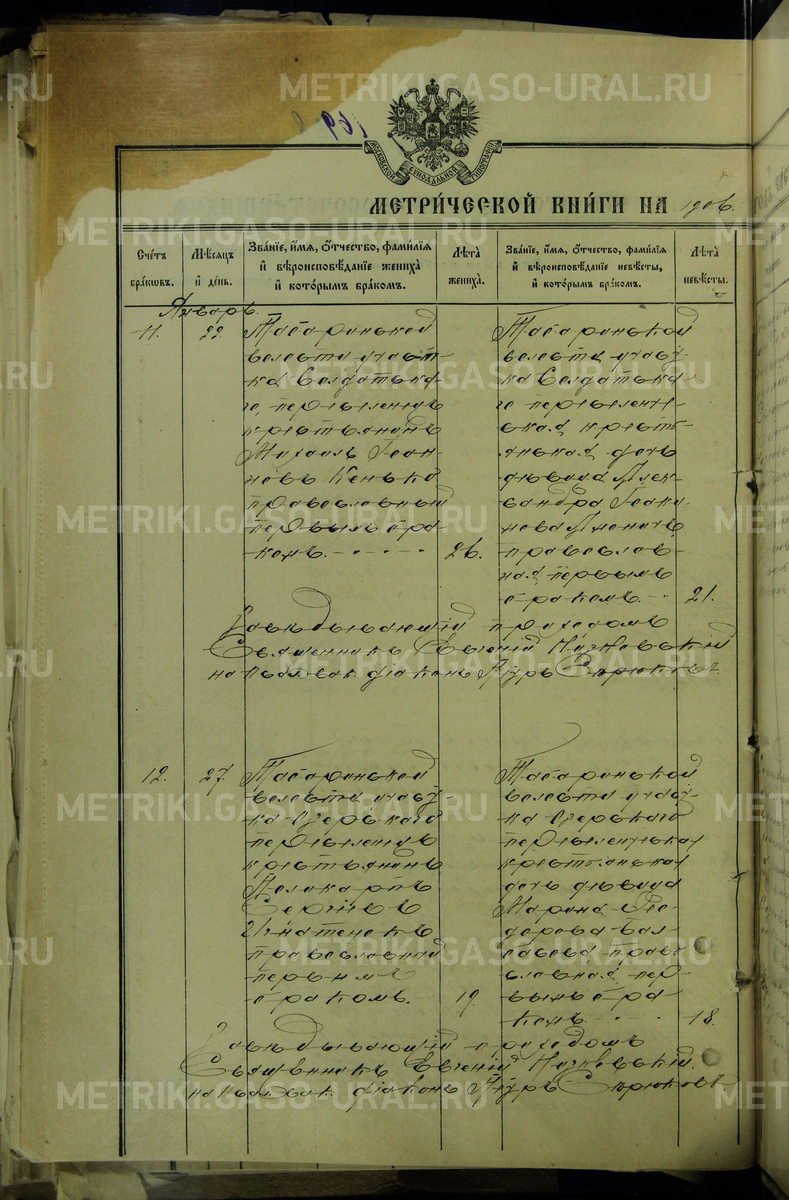 METRIKI.GASO-URAL.RU
МОСКОВСКОЙ СѴНОДАЛЬНОЙ ТИПОГРАФІИ
МЕТРИ́ЧЕСКОЙ КНИ́ГИ НА 1906.
Сче́тъ бра́ковъ.
Мѣ́сяцъ и҆ де́нь.
Зва́нїе, и҆́мѧ, ѻ҆́тчество, фами́лїѧ и҆ вѣроисповѣ́данїе жениха̀ и҆ кото́рымъ бра́комъ.
Лѣ́та жениха̀.
Зва́нїе, и҆́мѧ, ѻ҆́тчество, фами́лїѧ и҆ вѣроисповѣ́данїе невѣ́сты, и҆ кото́рымъ бра́комъ.
Лѣ́та невѣ́сты.
Январь.
11.
22
Табаринской
волости участ-
ка Солдатска-
го, переселенецъ
крестьянинъ
Михаилъ Іоан-
новъ Кенько
православный
первымъ бра-
комъ.
26.
Табаринской
волости участ-
ка Солдатска-
го переселенче-
ская крестъ-
янская дочь
дѣвица Алек-
сандра
православ-
ная, первымъ
бракомъ.
21.
Завѣдывающій приходомъ
Священникъ Евгеній
діаконъ
12.
27
Табаринской
волости участ-
ка Озерскаго
переселенецъ
крестьянинъ
Поликарпъ
Сергіевъ
Игнатенокъ
православный
первымъ
бракомъ.
19.
Табаринской
волости участ-
ка Озерскаго
переселенческая
крестьянская
дочь дѣвица
Марина Ѳео-
дорова
право-
славная, пер-
вымъ бра-
комъ.
18.
Завѣдывающій приходомъ
Священникъ Евгеній
діаконъ